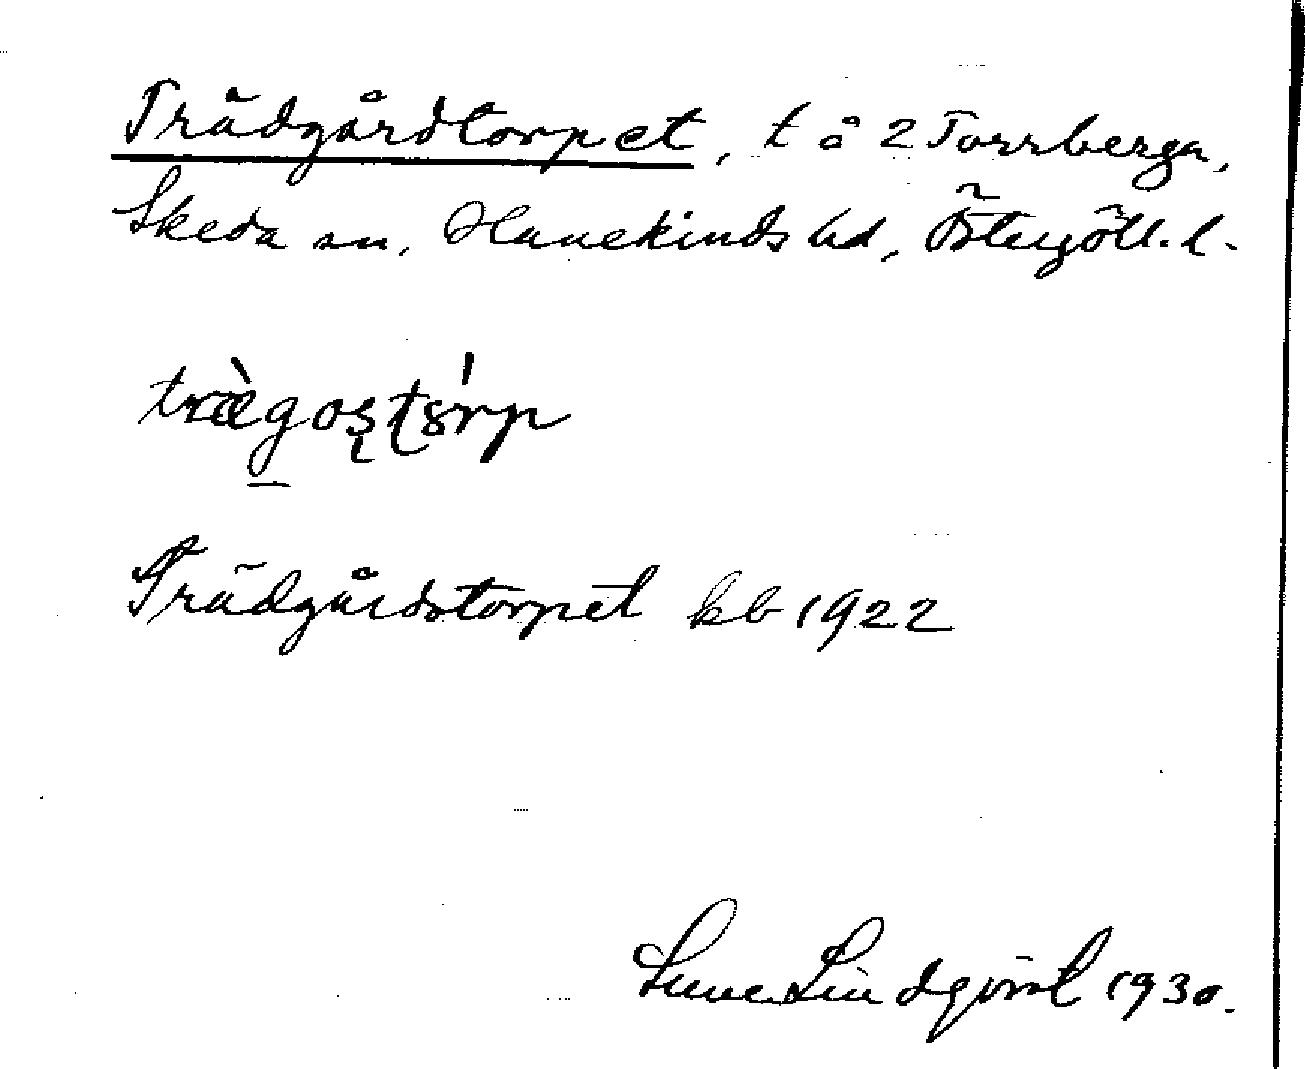 Trädgårdtorpet, t å 2 Torrberga,
Skeda sn, Hanekinds hd, Östergötl. l.
træ̀goştşrp
Trädgårdstorpet kb 1922
Sune Lindqvist 1930.